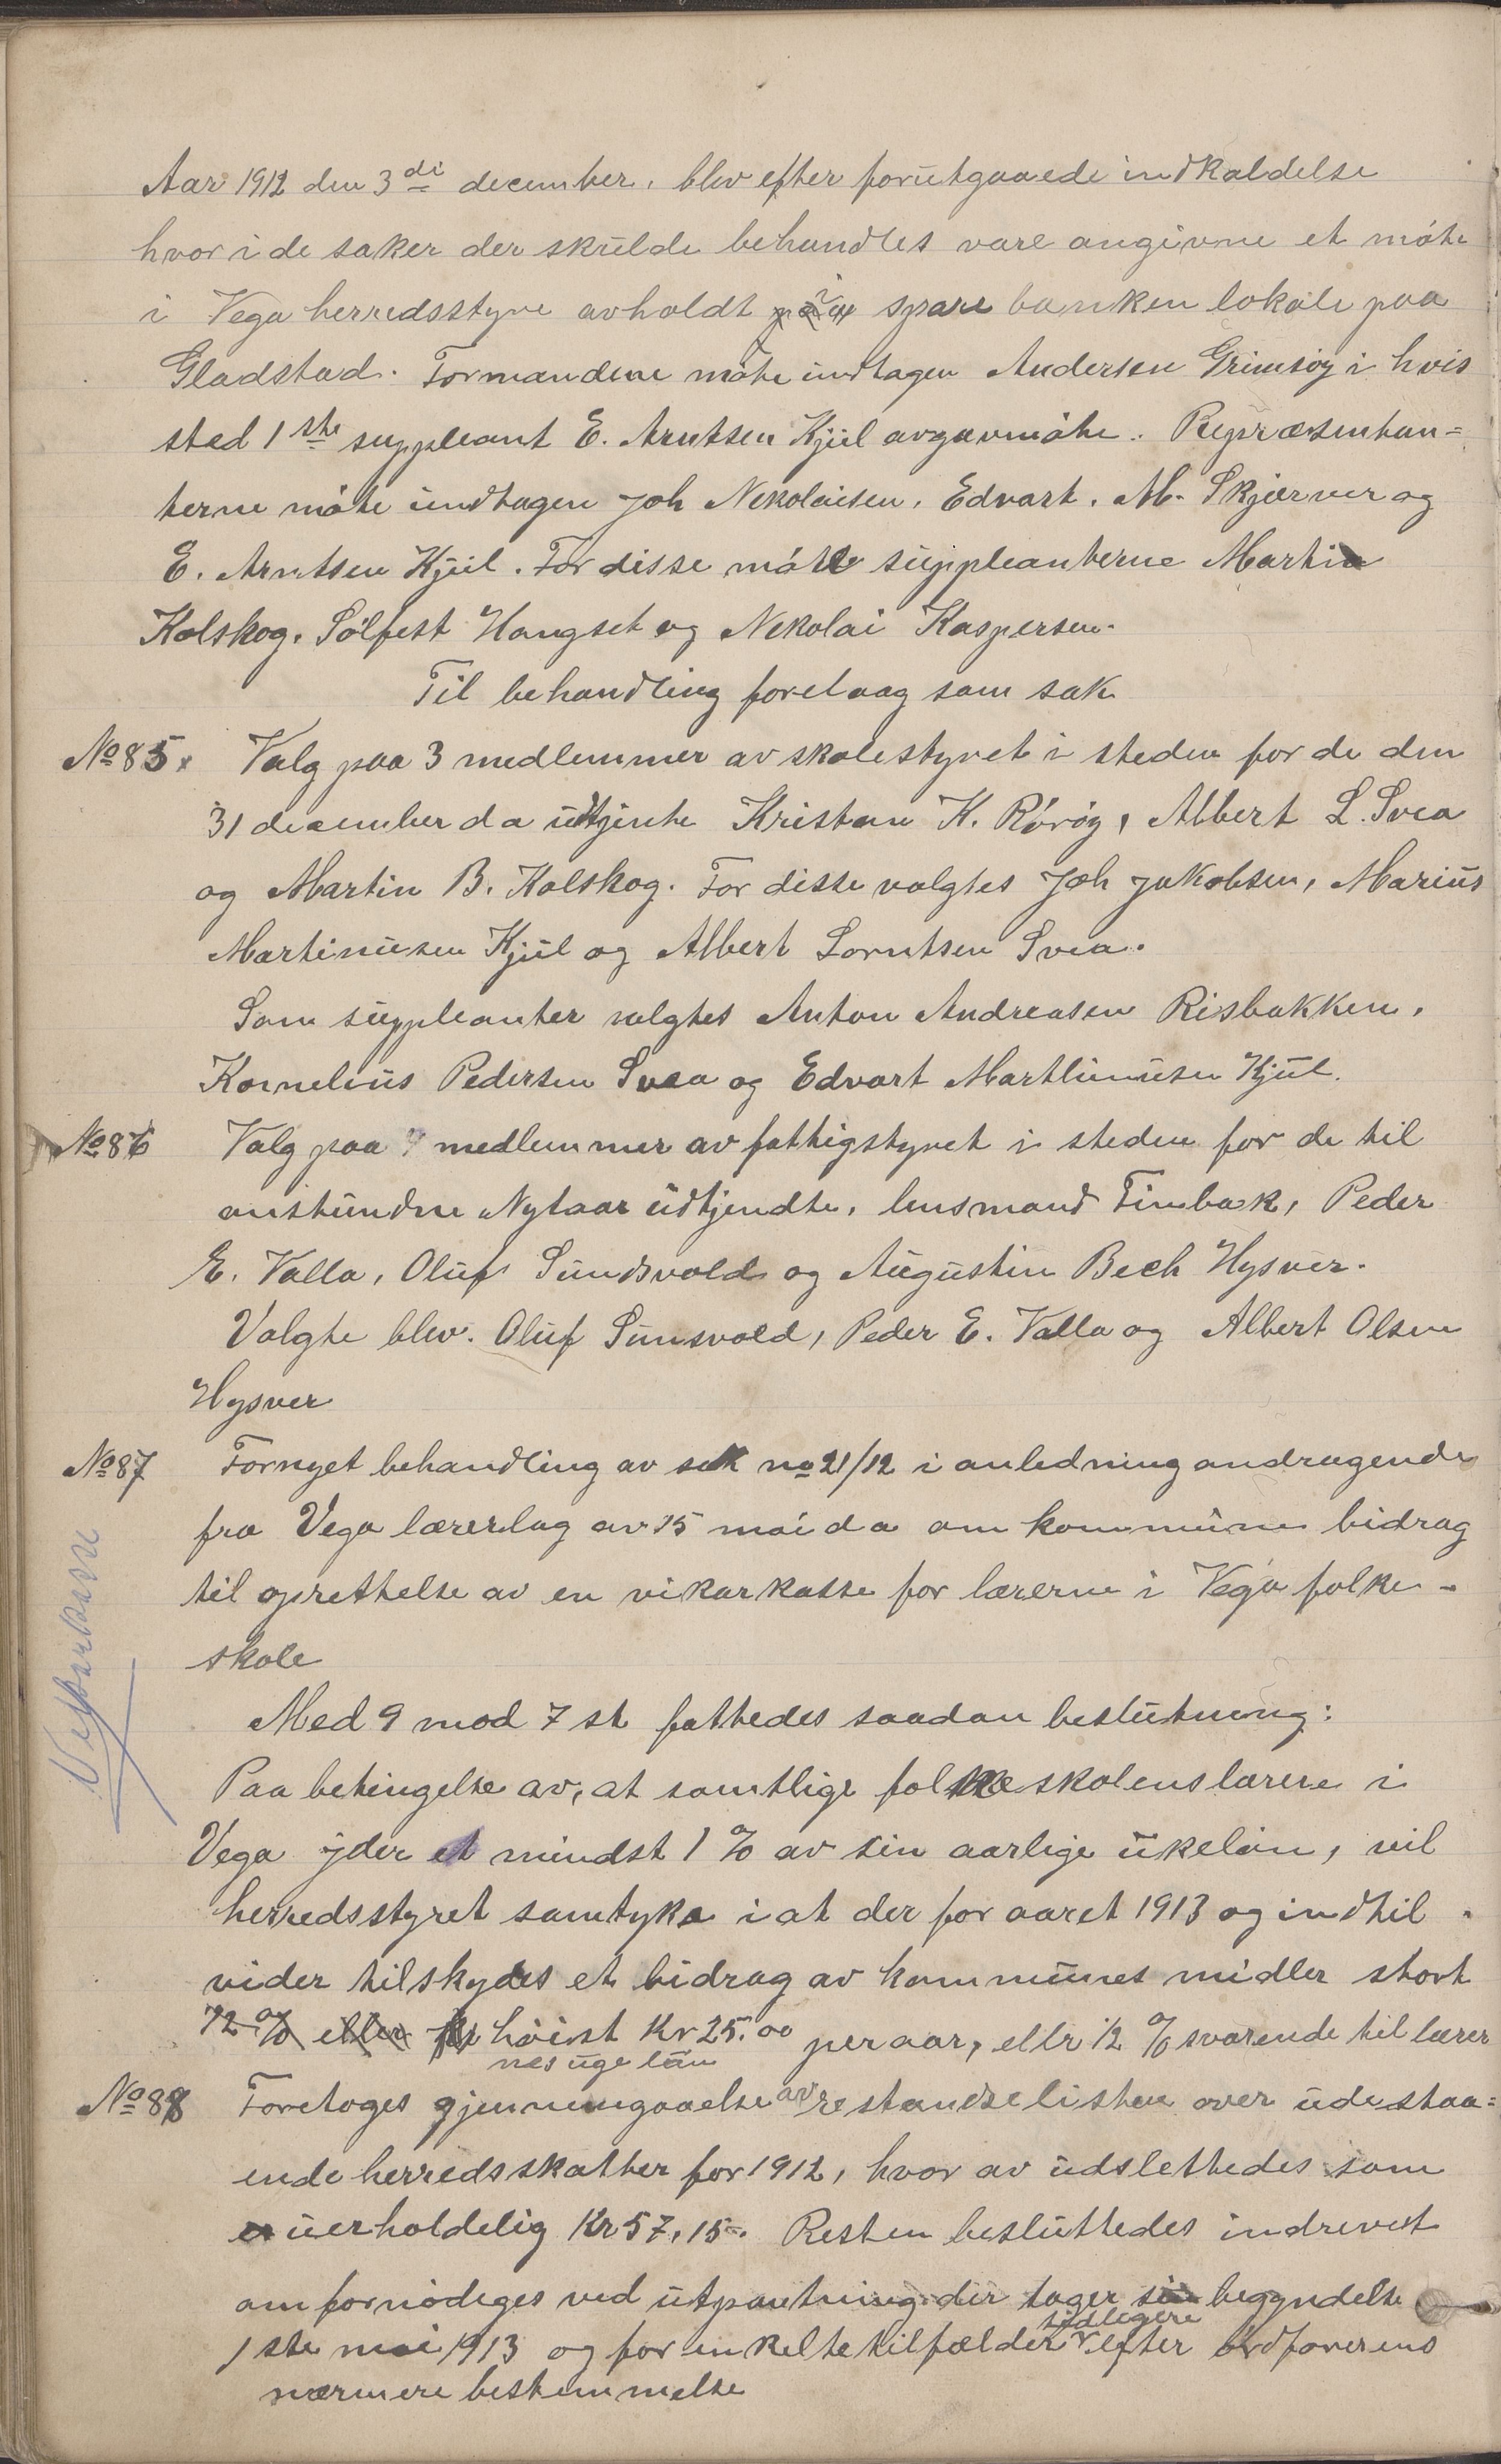 Aar 1912 den 3di december, blev efter forutgaaede indkaldelse
hvor i de saker der skulde behandles vare angivne et möte
i Vega herredsstyre avholdt i spare banken lokale paa
Gladstad. Formandene möte undtagen Andersen Grimsöy i hvis
sted 1ste suppleant E. Arntsen Kjul avgav möte. Repræsentan=
terne möte undtagen Joh Nekolaisen, Edvart. M. Skjærver og
E. Arntsen Kjul. For disse möte suppleanterne Martin
Kolskog. Sölfest Hongset og Nekolai Kaspersen.
Til behandling forelaag som sak
No 85. Valg paa 3 medlemmer av skolestyret i steden for de den
31 december da udtjente Kristan K. Röröy, Albert L. Svea
og Martin B. Kolskog. For disse valgtes Joh Jakobsen, Marius
Martinusen Kjul og Albert Lorntsen Svea.
Som suppleanter valgtes Anton Andreasen Risbakken,
Kornelius Pedersen Svea og Edvart Marthinusen Kjul.
No 86 Valg paa 4 medlemmer av fattigstyret i steden for de til
anstundne Nytaar udtjendte, lensmand Finbak, Peder
E. Valla, Oluf Sundsvold og Augustin Bech Hysver.
Valgte blev. Oluf Sunsvold, Peder E. Valla og Albert Olsen
Hysver
No 87 Fornyet behandling av sak no 21/12 i anledning andragende
fra Vega lærerlag av 15 mai da om kommune bidrag
til oprettelse av en vikarkasse for lærerne i Vega folke-
skole
Med 9 mod 7 st fattedes saadan beslutning:
Paa betingelse av, at samtlige folkeskolens lærere i
Vega yder et mindst 1 % av sin aarlige ukelön, vil
herredsstyret samtyke i at der for aaret 1913 og indtil
vider tilskydes et bidrag av kommunes midler stort
1/2 % eller höist Kr 25.00 per aar, ellr 1/2 % svarende til lærer
nes uge lön
No 88 Foretoges gjennemgaaelse av restanselisten over udestaa=
ende herredsskatter for 1912, hvor av udslettedes som
uerholdelig Kr 57,15. Resten besluttedes indrevet
om fornödeges ved utpantning der tager sin begyndelse
1ste mai 1913 og for enkelte tilfælder tidligere efter ordförerens
nærmere bestemmelse